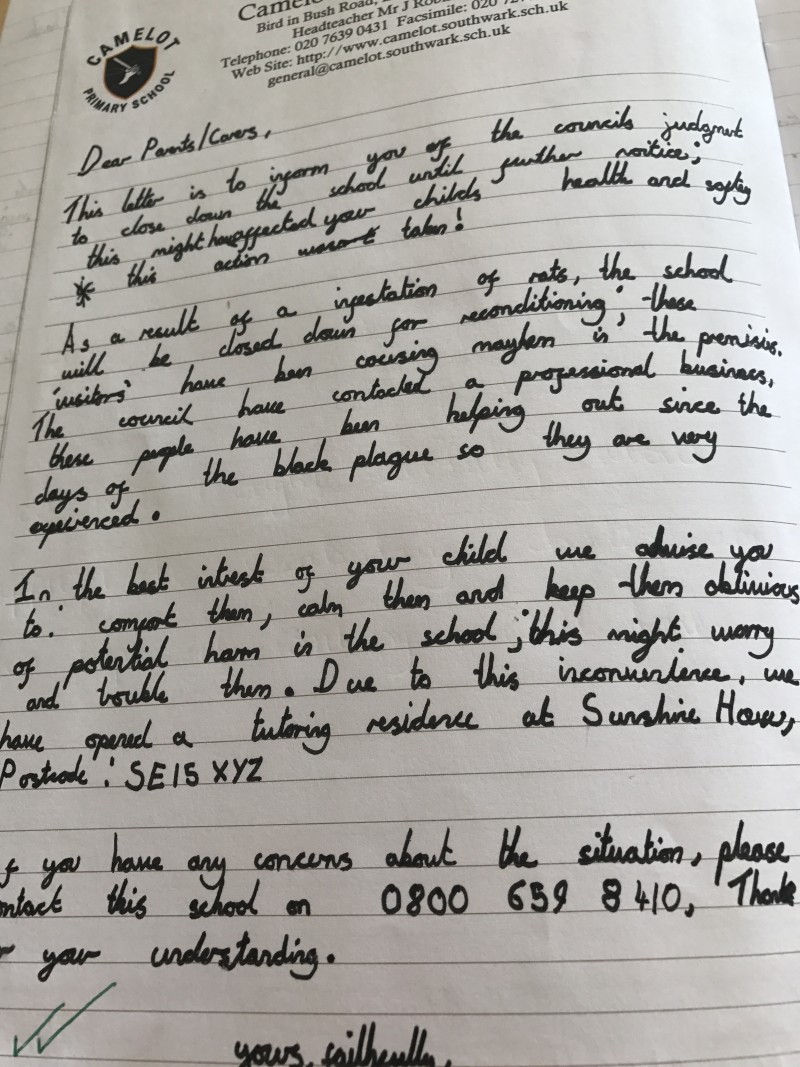 CAMELOT
PRIMARY SCHOOL
Bird in Bush Road,
Headteacher Mr J
Telephone: 020 7639 0431 Facsimile: 020
Web Site: http://www.camelot.southwark.sch.uk
general@camelot.southwark.sch.uk
Dear Parents/Carers,
This letter is to inform you of the councils judgmut
to close down the school until further noitice;
this might have affected your childs health and saftey
* this action wasnt taken!
As a result of a infestation of rats, the school
will be closed down for reconditioning; these
'visitors' have been causing mayhem in the premisis.
The council have contacted a professional business,
these people have been helping out since the
days of the black plague so they are very
experienced.
In the best intrest of your child we advise you
to: comfort them, calm them and keep them oblivious
of potential harm in the school; this might worry
and trouble them. Due to this inconvenience, we
have opened a tutoring residence at Sunshine House,
Postcode: SE15 XYZ
f you have any concerns about the situation, please
ntact this school on 0800 659 8410, Thank
r your understanding.
yours, faithfully,